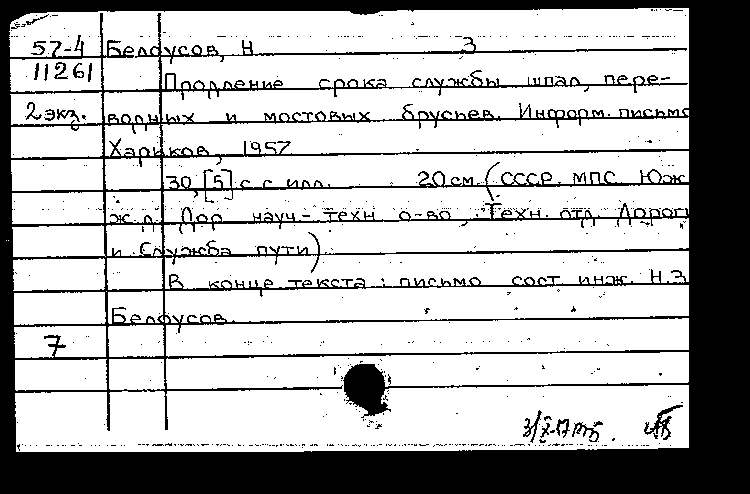 57-4 Белоусов, Н. З
11261 Продление срока службы шпал, пере-
2 экз. водных и мостовых брусьев. Информ. письмо
Харьков, 1957
30, [5] с. с илл. 20 см. (СССР. МПС. Юж.
ж.д. Дор. науч.-техн. о-во, Техн. отд. Дороги
и Служба пути)
В конце текста: письмо сост. инж. Н.З.
Белоусов.
7